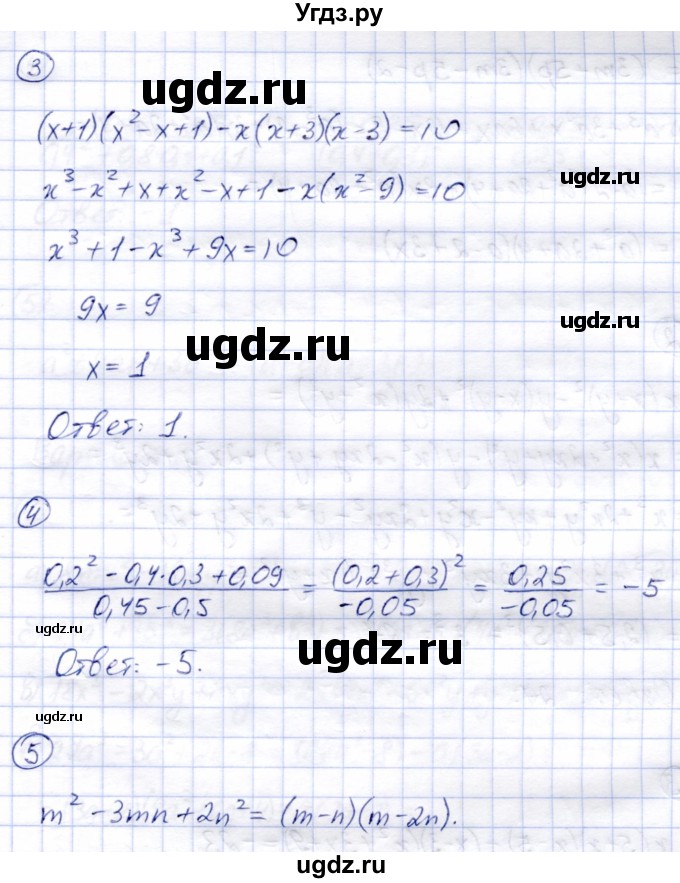 Угдз.ру
3
ugdz.ru
(x+1)(x²-x+1)-x(x+3)(x-3)=10
ugdz.ru
x³-x²+x+x²-x+1-x(x²-9)=10
x³+1-x³+9x=10
9x=9
ugdz.ru
ugdz.ru
x=1
Ответ: 1.
4
(0,2²-0,4·0,3+0,09)/(0,45-0,5) = (0,2+0,3)²/(-0,05) = 0,25/(-0,05) = -5
ugdz.ru
ugdz.ru
Ответ: -5.
ugdz.ru
5
m²-3mn+2n²=(m-n)(m-2n).
ugdz.ru